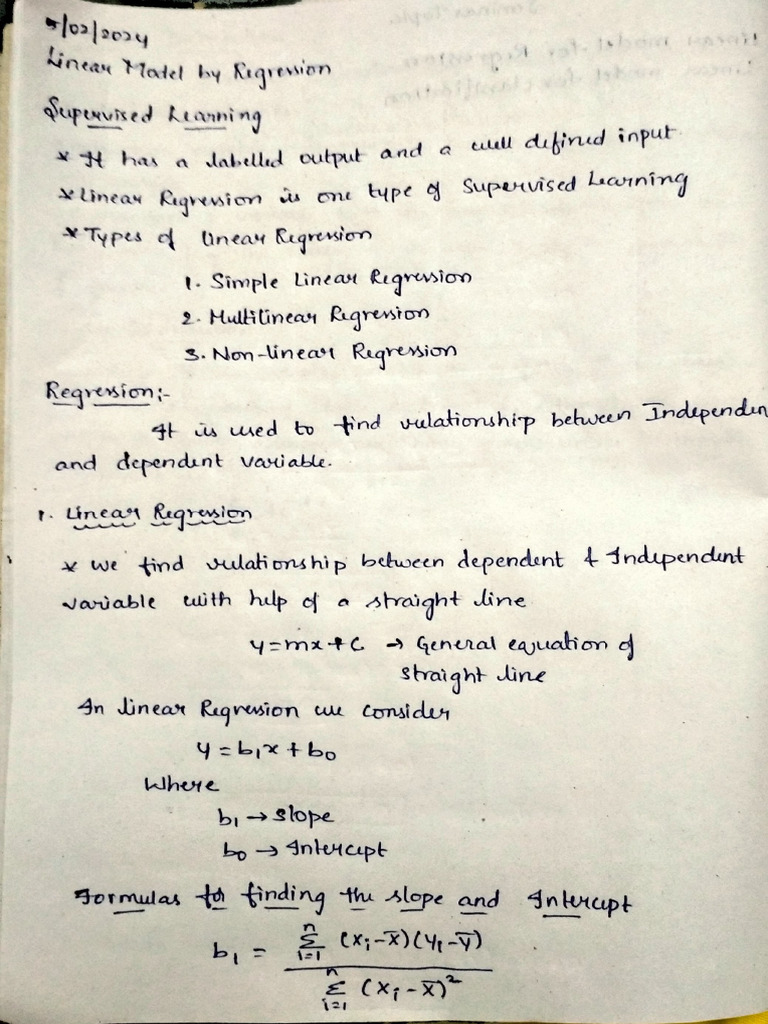 5/02/2024
Linear Model by Regression
Supervised Learning
* It has a labelled output and a well defined input.
* Linear Regression is one type of Supervised Learning
* Types of linear Regression
1. Simple Linear Regression
2. Multilinear Regression
3. Non-linear Regression
Regression:-
It is used to find relationship between Independen
and dependent variable.
1. Linear Regression
* we find relationship between dependent & Independent
variable with help of a straight line
y=mx+c → General equation of
straight line
In linear Regression we consider
y = b₁x + b₀
Where
b₁ → slope
b₀ → Intercept
Formulas for finding the slope and Intercept
b₁ = n Σ i=1 (xᵢ-x̄)(yᵢ-ȳ)
n Σ i=1 (xᵢ-x̄)²